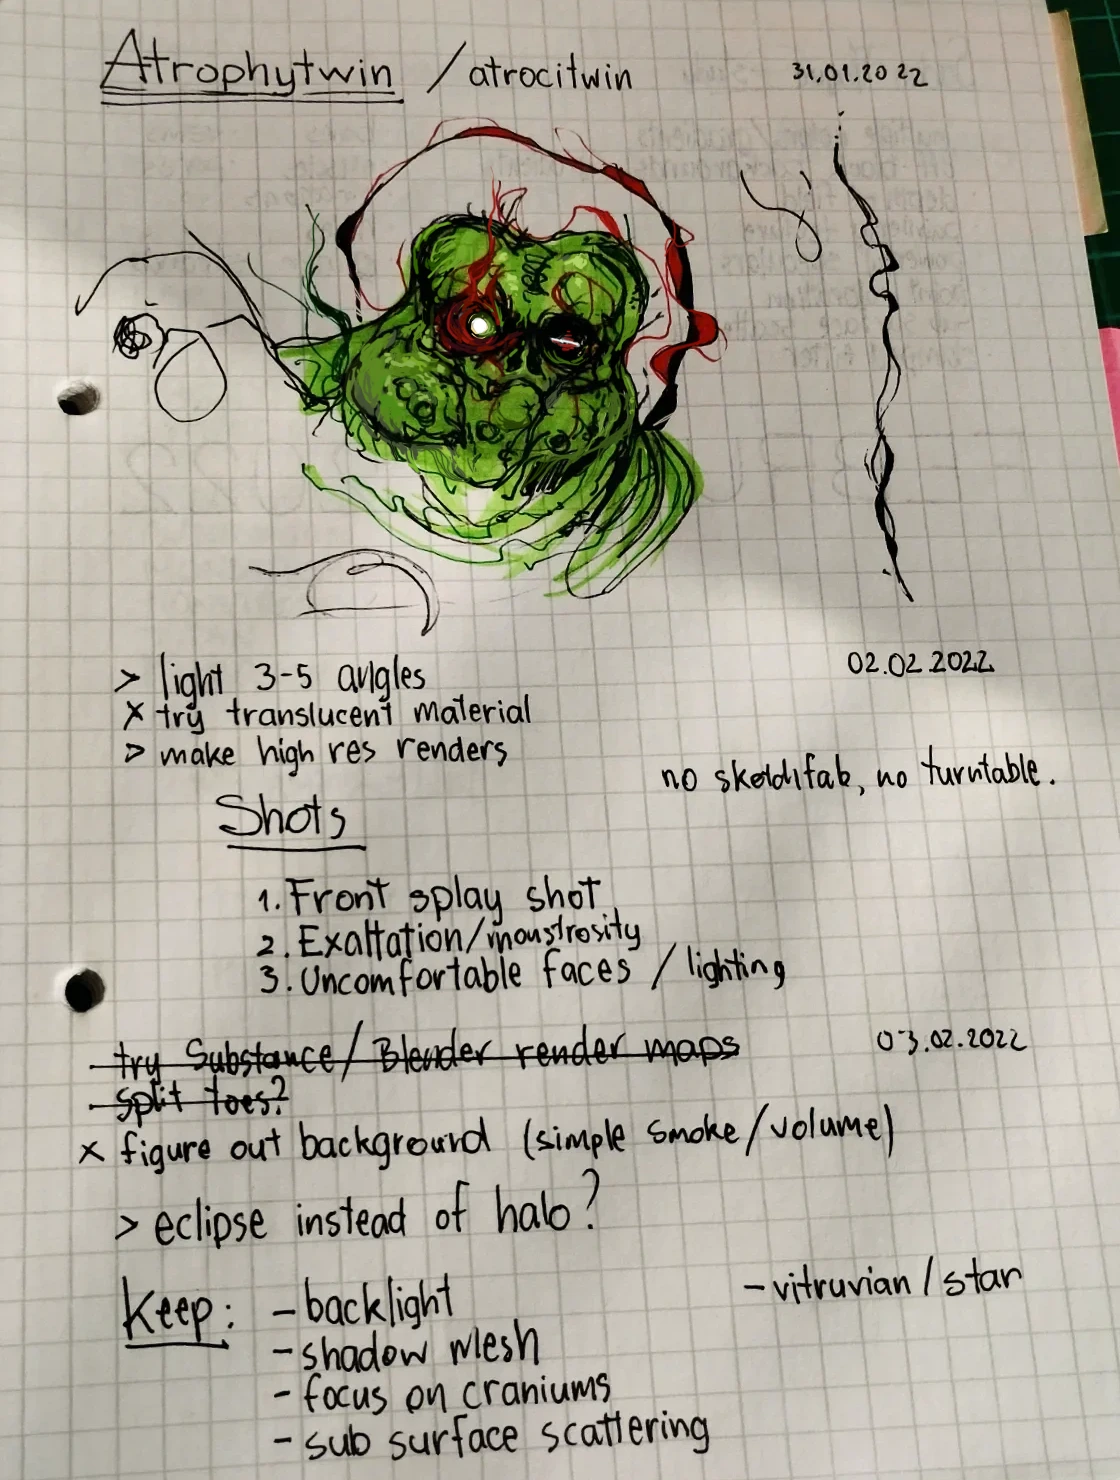 Atrophytwin / atrocitwin
31.01.2022
> light 3-5 angles
02.02.2022
x try translucent material
> make high res renders
no skeldifab, no turntable.
Shots
1. Front splay shot
2. Exaltation/monstrosity
3. Uncomfortable faces / lighting
- try Substance/Blender render maps
03.02.2022
- split toes?
x figure out background (simple smoke/volume)
> eclipse instead of halo?
Keep: - backlight
- vitruvian/star
- shadow mesh
- focus on craniums
- sub surface scattering